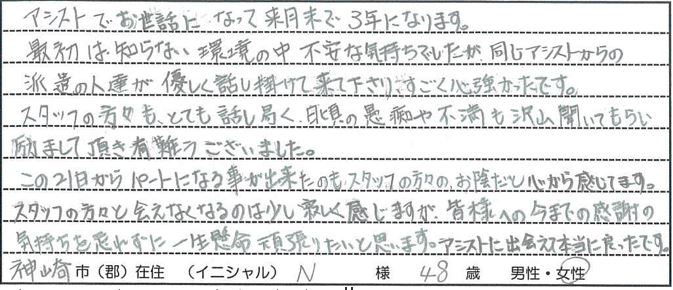 アシストでお世話になって来月末で3年になります。
最初は知らない環境の中不安な気持ちでしたが、同じアシストからの
派遣の人達が優しく話し掛けて来て下さり、すごく心強かったです。
スタッフの方々も、とても話し易く、日頃の愚痴や不満も沢山聞いてもらい
励まして頂き有難うございました。
この21日からパートになる事が出来たのも、スタッフの方々の、お陰だと心から感じてます。
スタッフの方々と会えなくなるのは少し寂しく感じますが、皆様への今までの感謝の
気持ちを忘れずに一生懸命頑張りたいと思います。アシストに出会えて本当に良ったです。
神崎市（郡）在住 （イニシャル） N 様 48歳 男性・女性